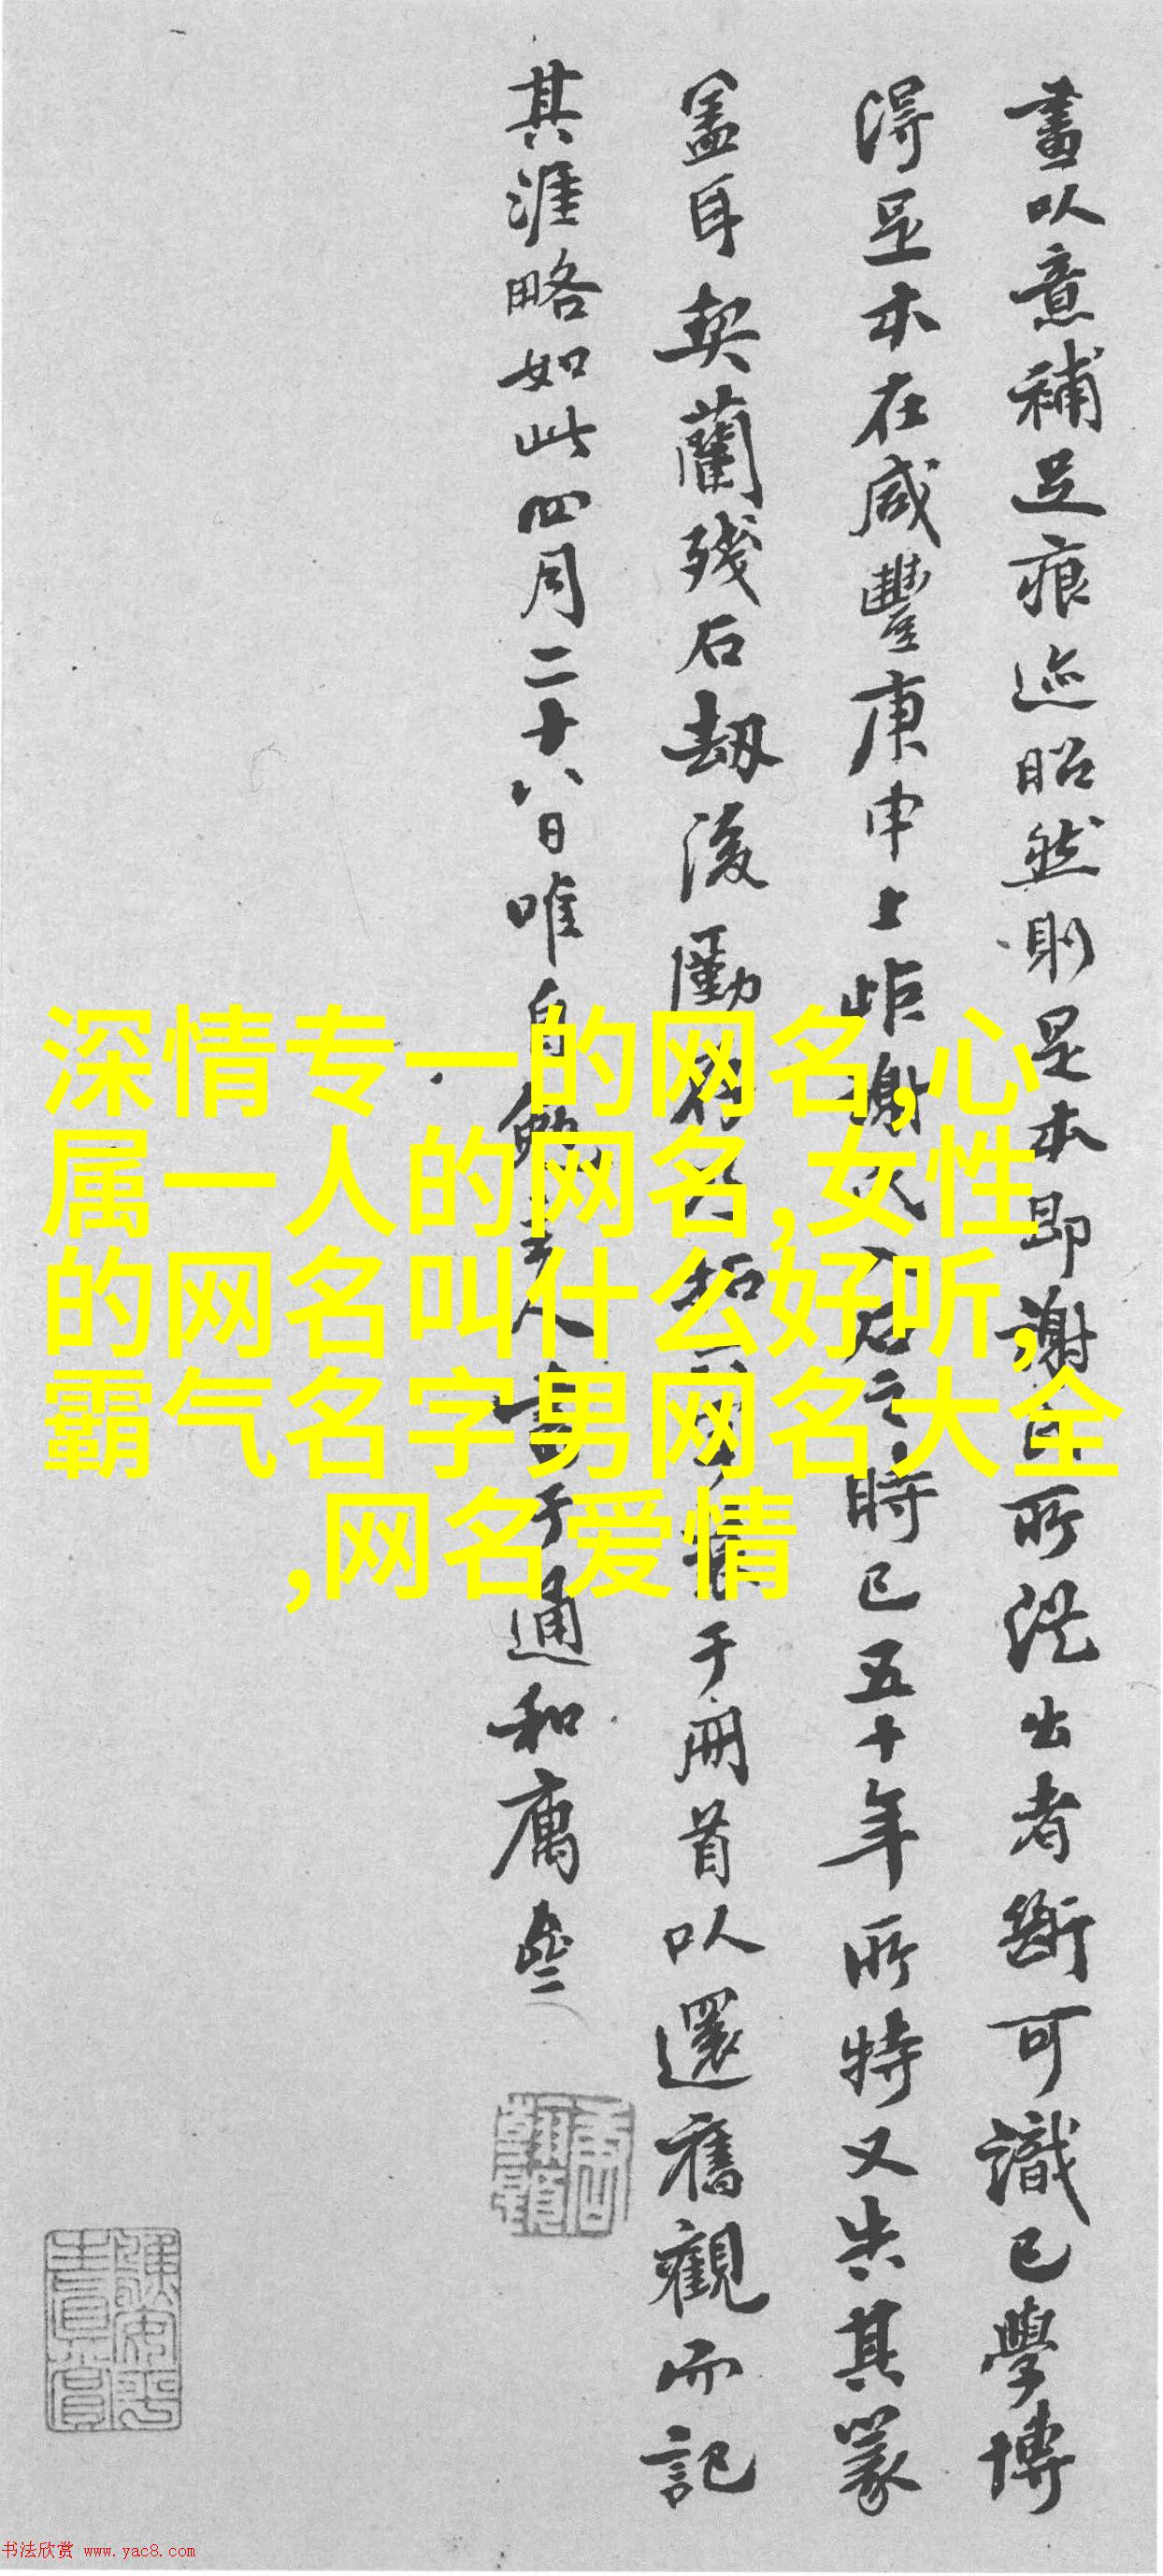 畫以意補足痕迹昭然則是本即謝氏所從出者斷可識已學博
得是本在咸豐庚申上距謝氏入石之時已五十年所特又失其篆
蓋耳契蘭殘石劫後拓于冊首以還舊觀而記
其涯略如此四月二十八日唯自勉主人書于通和庽
深情专一的网名,心
属一人的网名,女性
的网名叫什么好听,
霸气名字男网名大全
,网名爱情
书法欣赏 www.yac8.com